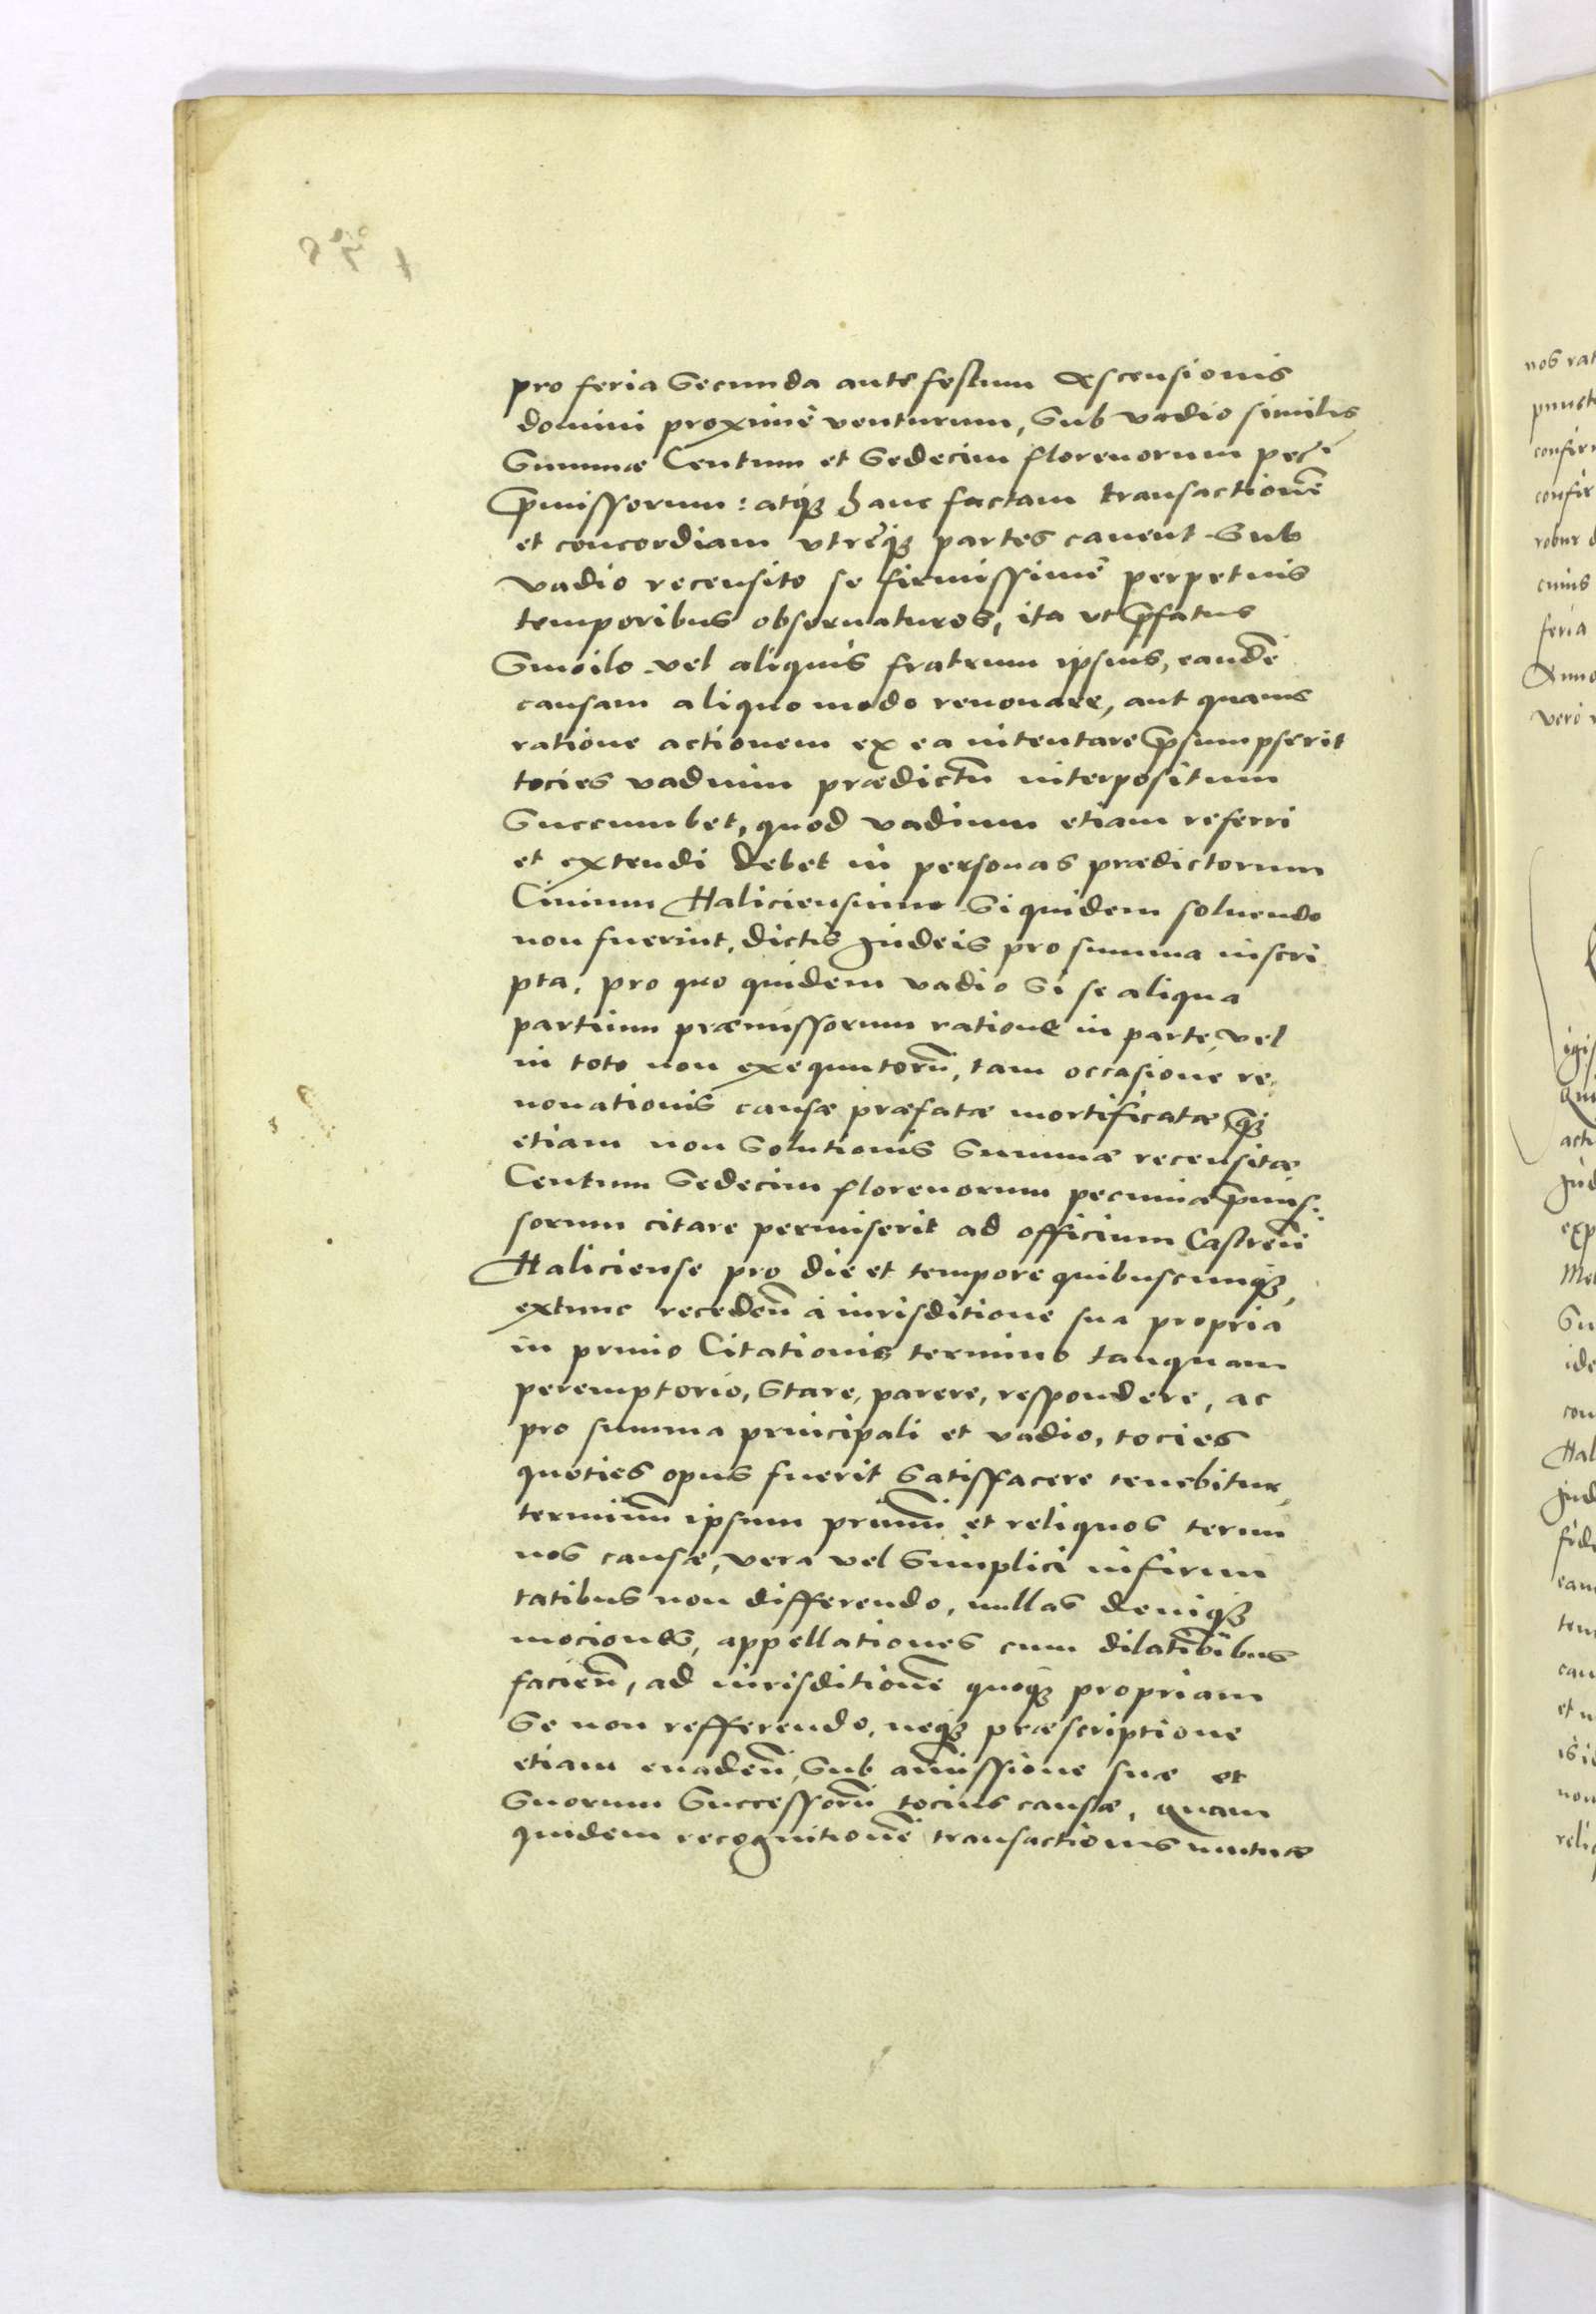 pro feria Secunda ante festum Ascensionis
domini proximè venturum, Sub vadio similis
Summæ Centum et Sedecim florenorum pec:
p̄missorum: atq3 hanc factam transactionē
et concordiam vtreq3 partes cauent Sub
vadio recensito se firmissimè perpetuis
temporibus obseruaturos, ita vt p̄fatus
Smoilo vel aliquis fratrum ipsius, eandē
causam aliquo modo renouare, aut quauis
ratione actionem ex ea intentare p̄sumpserit
tocies vadium prædictū interpositum
Succumbet, quod vadium etiam referri
et extendi debet in personas prædictorum
Ciuium Haliciensium Si quidem soluendo
non fuerint, dictis Judeis pro summa inscri
pta, pro quo quidem vadio Si se aliqua
partium præmissorum ratione in parte vel
in toto non exequutorū, tam occasione re,
nouationis causæ præfatæ mortificatæ q3
etiam non Solutionis Summæ recensitæ
Centum Sedecim florenorum pecuniæ p̄mis:
sorum citare permiserit ad officium Castren̄
Haliciense pro die et tempore quibuscunq3,
extunc receden̄ à iurisditione sua propria
in primo Citationis termino tanquam
peremptorio, Stare, parere, respondere, ac
pro summa principali et vadio, tocies
quoties opus fuerit Satisfacere tenebitur,
terminū ipsum primū et reliquos termi
nos causæ, vera vel Simplici infirmi
tatibus non differendo, nullas deniq3
mociones, appellationes cum dilatiōibus
facien̄, ad iurisditionē quoq3 propriam
Se non refferendo, neq3 præscriptione
etiam euaden̄, Sub amissione suæ et
Suorum Successorū tocius causæ, quam
quidem recognitionē transactionis mutuæ
nos rat
confir
confir
robur
cuius
feria
Anno
vero